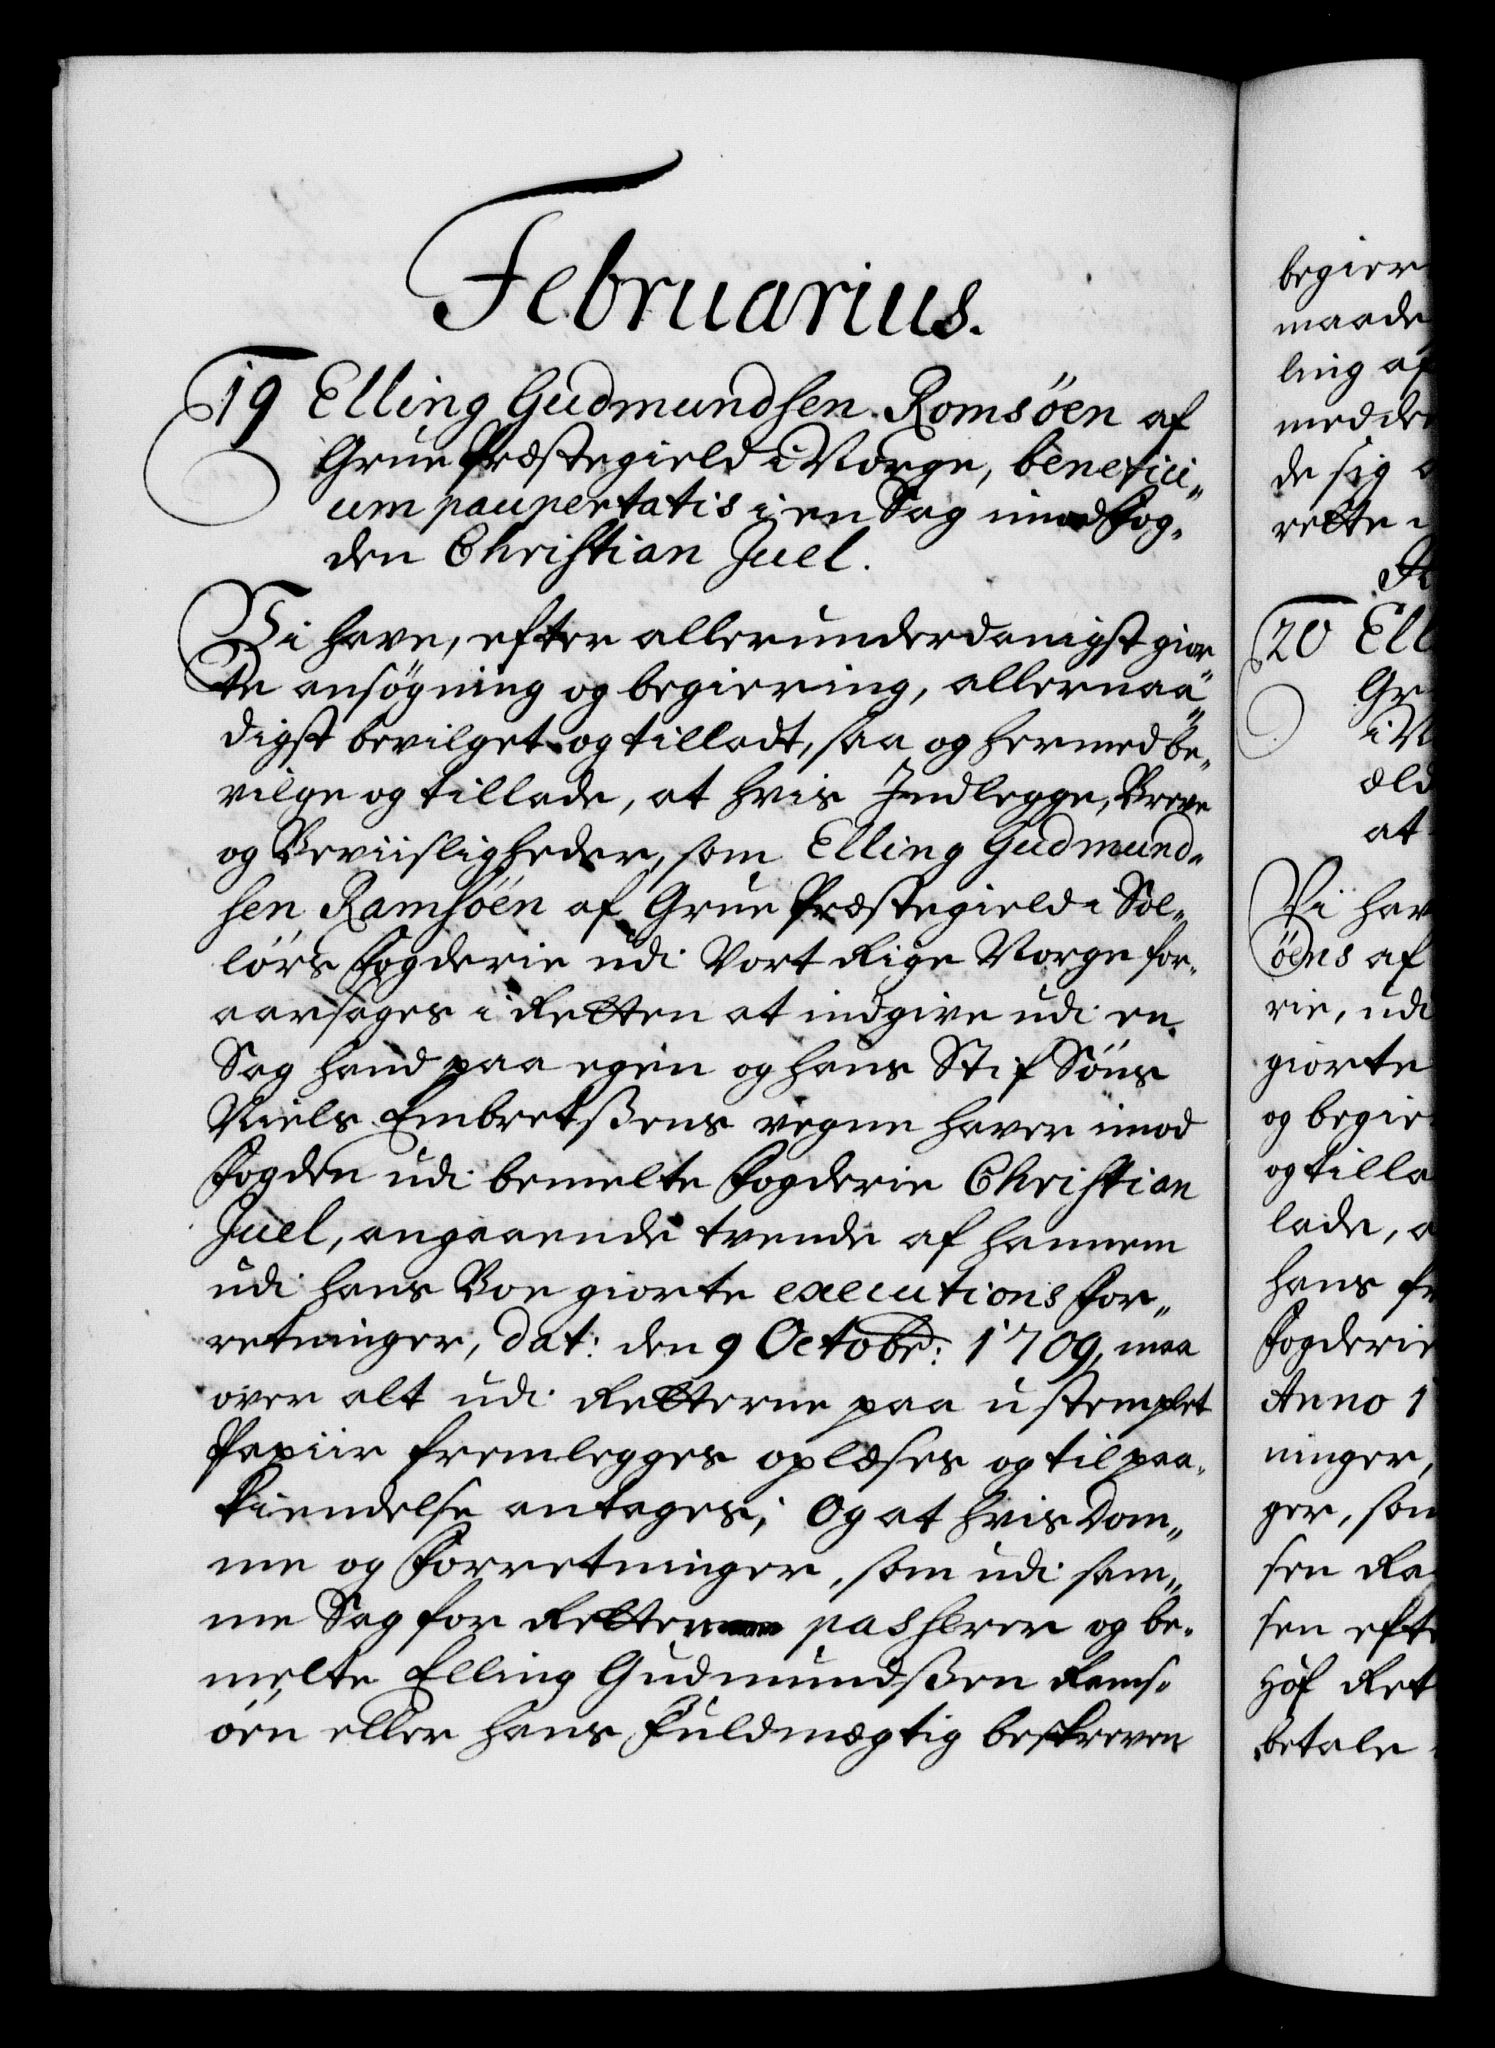 Februarius.
19 Elling Gudmundsen Romsöen af
Grue Præstegield i Norge, benefici„
um paupertatis i en Sag imod Fog„
den Christian Juel.
Vi have, efter allerunderdanigst gior„
te ansøgning og begiering, allernaa„
digst bevilget og tilladt, saa og hermed be„
vilge og tillade, at hvis Indlegge, Breve
og Beviisligheder, som Elling Gudmund„
sen Ramsöen af Grue Præstegield i Sol„
lörs Fogderie udi Vort Rige Norge for„
aarsages i Retten at indgive udi en
Sag hand paa egen og hans Stif Söns
Niels Embretßens vegne haver imod
Fogden udi bemelte Fogderie Christian
Juel, angaaende trende af hannem
udi hans Boe giorte executions For„
retninger, dat: den 9 Octobr: 1709, maa
over alt udi Retterne paa ustemplet
Papiir fremlegges oplæses og til paa„
kiendelse antages; Og at hvis Dom„
me og Forretninger, som udi sam„
me Sag for Retten passerer og be„
melte Elling Gudmundßen Rams„
öen eller hans Fuldmægtig beskreven
begier
maade
ling af
medde
de sig
rette i
20 Ell
Gr
i N
æld
at
Vi hav
öens af
rie, udi
giorte
og begie
og tilla
lade, a
hans fr
Fogderie
Anno 1
ninger,
ger, som
sen Ra
sen efte
Hof Ret
betale